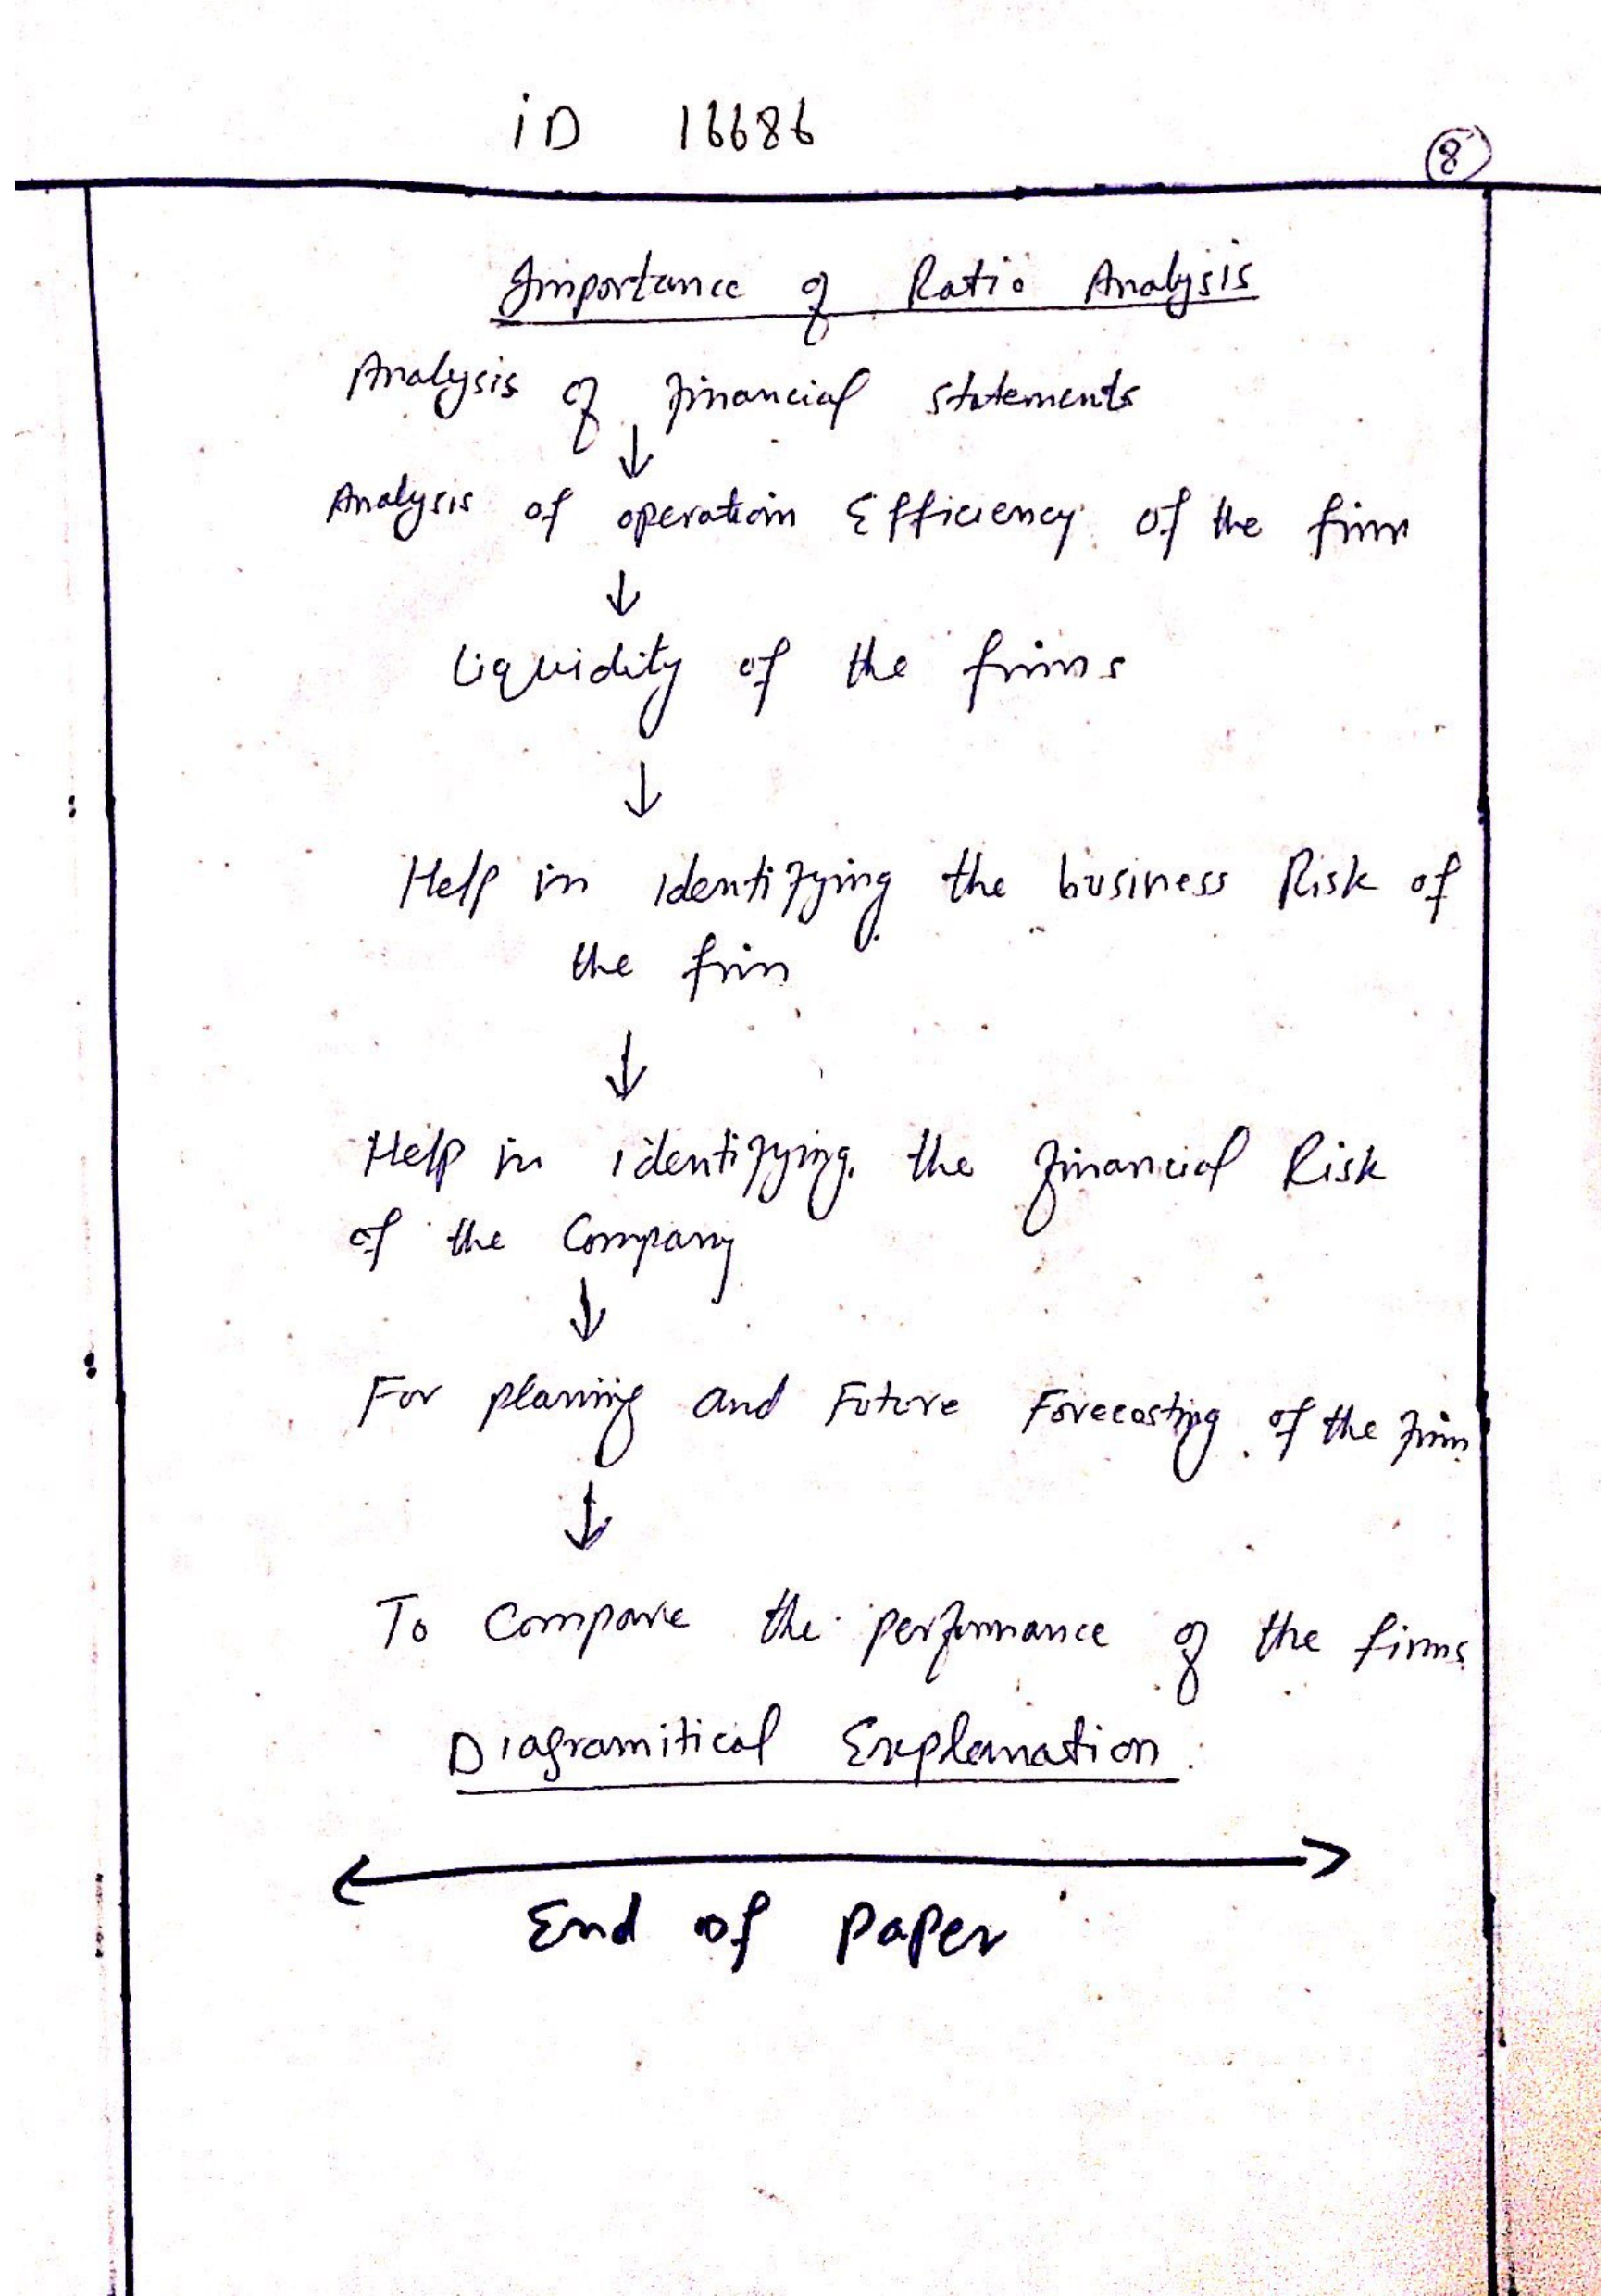 iD 16686
8
Importance of Ratio Analysis
Analysis of financial statements
↓
Analysis of operation Efficiency of the firm
↓
Liquidity of the firms
↓
Help in identifying the business Risk of
the firm
↓
Help in identifying the financial Risk
of the Company
↓
For planing and Future Forecasting of the firm
↓
To Compare the performance of the firms
Diagramitical Explanation
End of paper